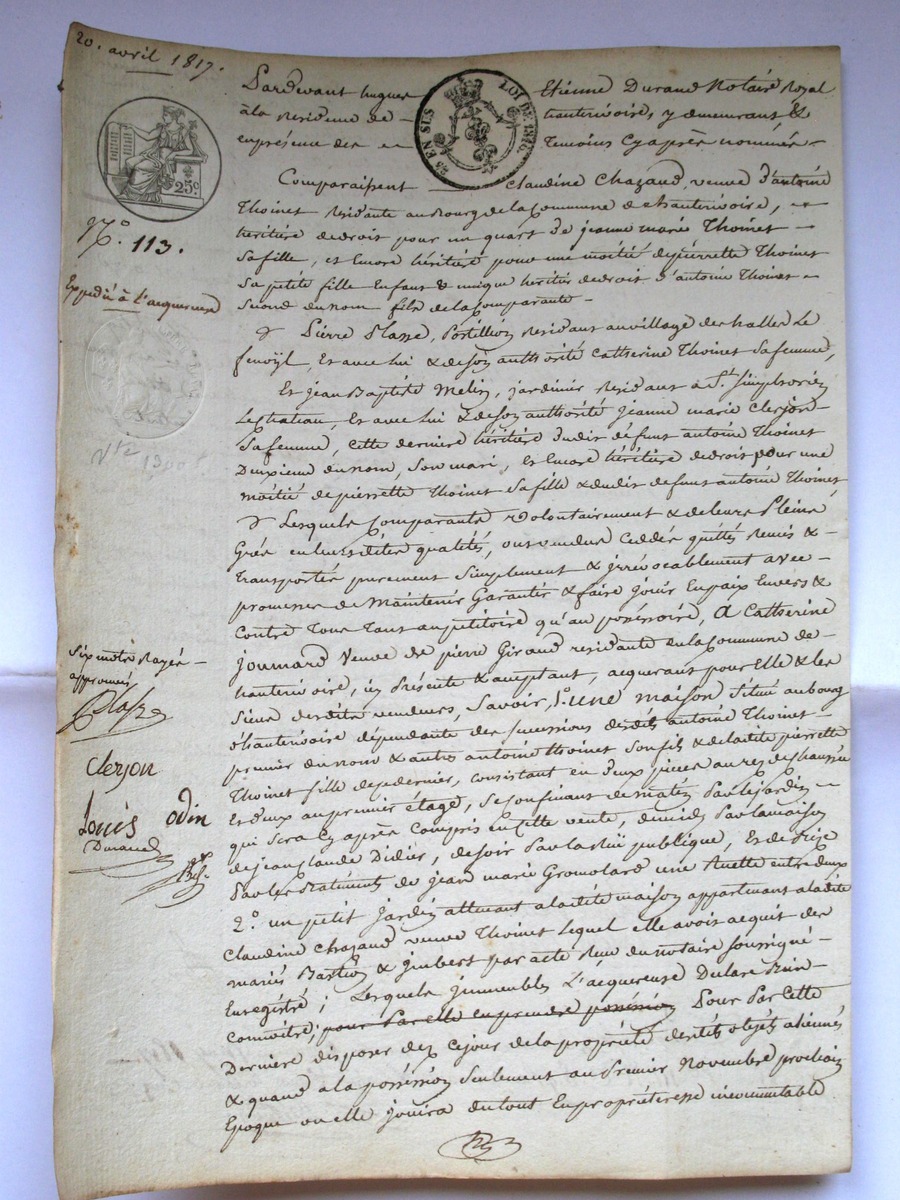 20. avril 1817.
25 EN SUS
LOI DE 1816.
25c
N.o 113.
Expedié à l'acquereuse
Pardevant hugues Etienne Durand Notaire Royal
à la Residence de chantenivoire, y demeurant &
en présence des temoins cy après nommés
Comparaissent Claudine Chazaud, veuve d'antoine
Thoinet residante au Bourg de la Commune de chantenivoire,
héritière de droit pour un quart de jeanne marie Thoinet
sa fille, et Encore héritière pour une moitié de pierrette Thoinet
sa petite fille Enfant & unique heritier de droit d'antoine Thoinet
second du nom fils de la Comparante
& Pierre Plasse, Postillion Residant au village des halles Le
fenoÿl, Et avec lui & de son authorité Catherine Thoinet sa femme,
Et Jean Baptiste Melin, jardinier Residant à St. Simphorien
Le chateau, Et avec lui & de son authorité jeanne marie Clerjon
sa femme, cette derniere héritière dudit défunt antoine Thoinet
Deuxieme du nom, son mari, Et Encore héritière de droit pour une
moitié de pierrette Thoinet sa fille & dudit défunt antoine Thoinet
& Lesquels Comparants volontairement & de leurs Pleins
Grés en leursdites qualités, ont vendu Ceddé quitté Remis &
transporté purement simplement & irrévocablement avec
promesse de Maintenir Garantir & faire jouir En paix Envers &
Contre Tous tant au petitoire qu'au posséssoire, A Catherine
joumard veuve de pierre Giraud residante en la Commune de
chantenivoire, ici présente & acceptant, acquerant pour Elle & les
siens desdits vendeurs, savoir, 1.o une maison située au bourg
chantenivoire dépendante des successions desdits antoine Thoinet
premier du nom & autre antoine Thoinet son fils & de ladite pierrette
Thoinet fille de ce dernier, consistant en deux pieces au rez de chaussée
Et deux au premier étage, se confinant de matin Par le jardin
qui sera cy après compris en cette vente, de midi Par la maison
de jean claude Didier, de soir Par la rüe publique, Et de bize
Par les Batiments de jean marie Gromolard une Ruette entre deux
2.o un petit jardin attenant à ladite maison appartenant à ladite
Claudine Chazaud veuve Thoinet Lequel elle avoit acquit des
mariés Bastion & jimbert par acte Reçu du notaire soussigné
Enregistré; Lesquels jmmeubles L'acquereuse Declare Bien
connoitre; pour Par elle en prendre posséssion Pour Par Cette
Derniere disposer dez ce jour de la propriété desdits objets aliennés
& quand à la posséssion seulement au Premier Novembre prochain
Epoque ou elle jouira du tout En propriéteresse incommutable
Six mots Rayés
approuvés
Plasse
Clerjon
Louis Odin
Durand